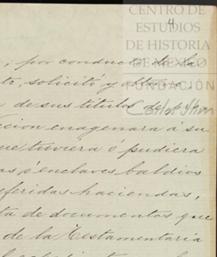 CENTRO DE
ESTUDIOS
DE HISTORIA
DE MÉXICO
FUNDACIÓN
Carlos Slim
4
, por conducto de la
to, solicitó y obtuvo
de sus títulos de
cion enagenara a su
que tuviera ó pudiera
as ó enclaves baldios
eferidas haciendas,
ta de documentos que
de la Testamentaria